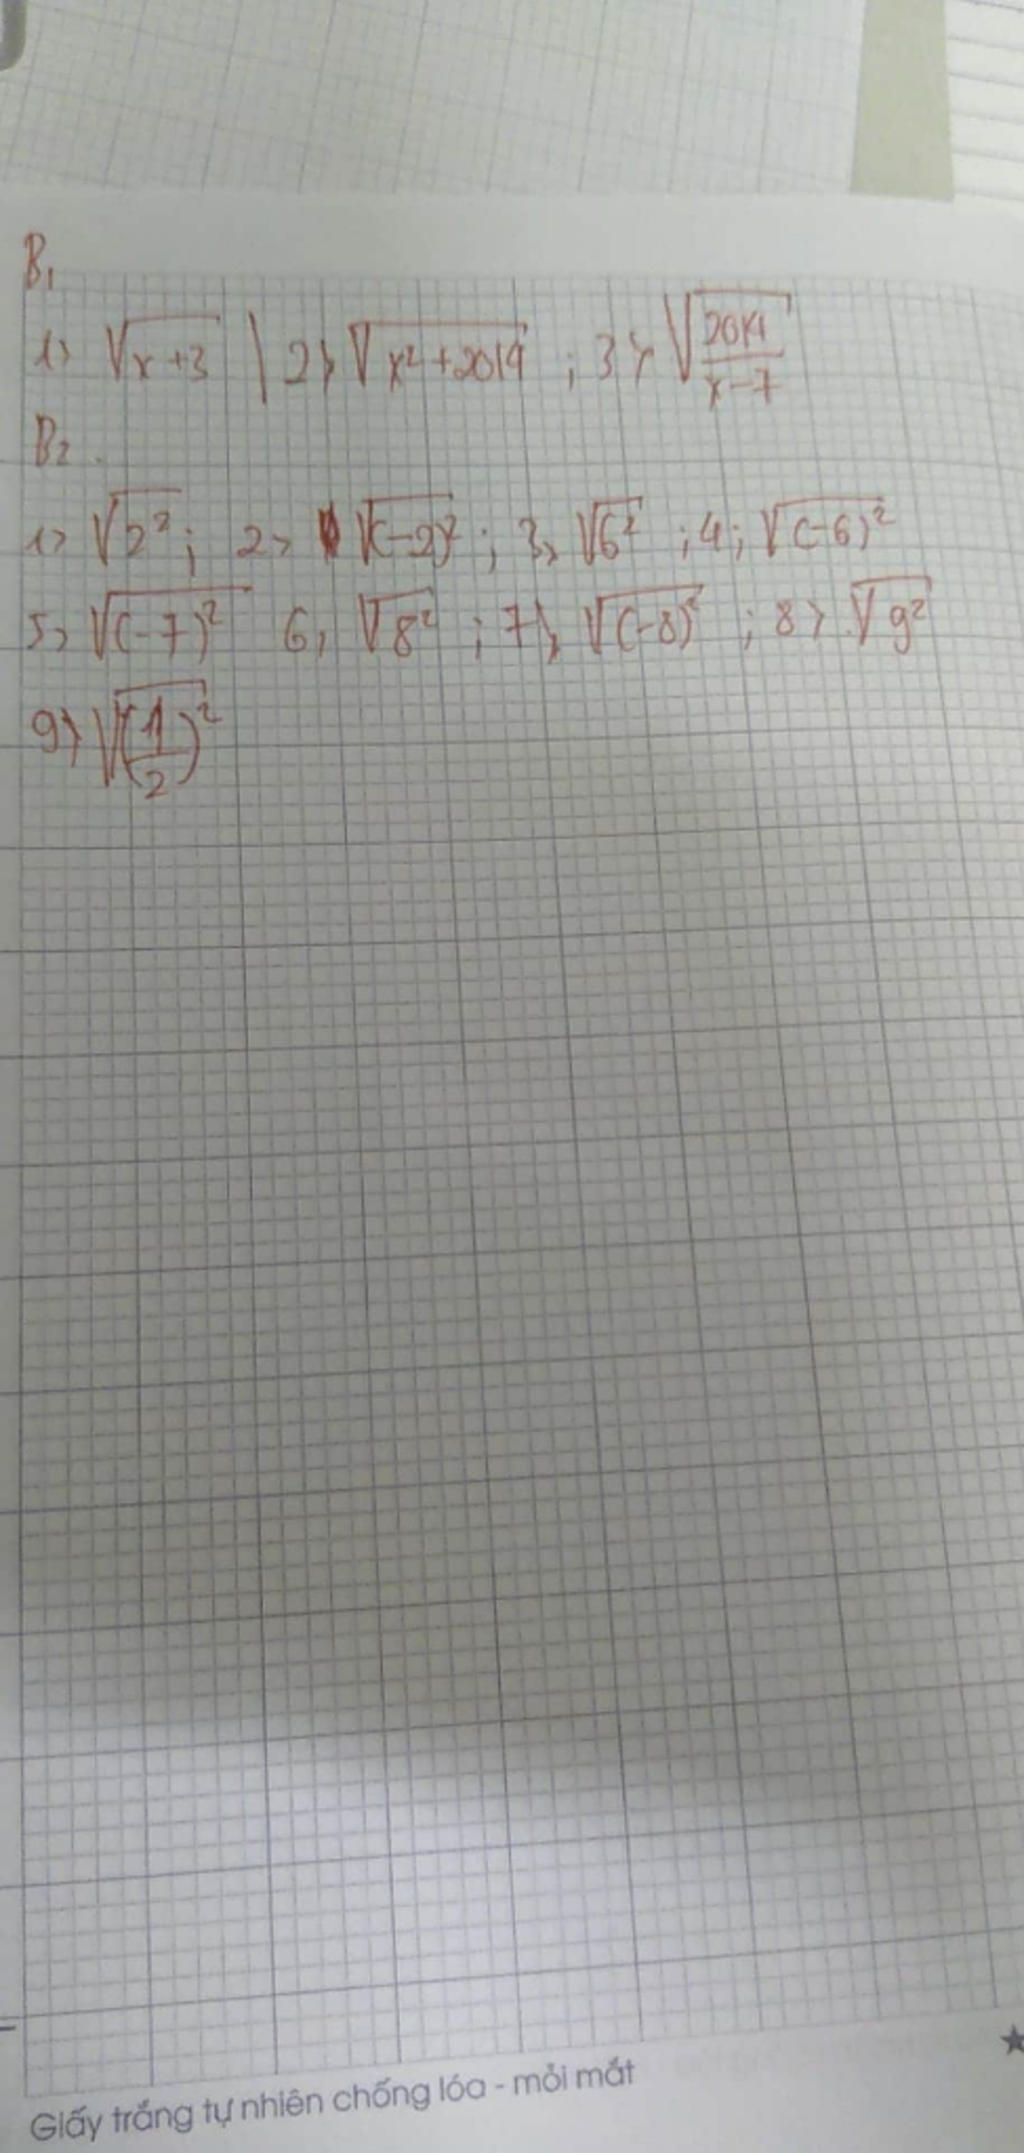 B₁
1) √(x+3) | 2) √(x²+2019) ; 3) √(2019/(x-7))
B₂.
1) √2² ; 2) √(-2)² ; 3) √6² ; 4; √(-6)²
5) √(-7)² 6) √8² ; 7) √(-8)² ; 8) √9²
9) √(1/2)²
Giấy trắng tự nhiên chống lóa - mỏi mắt